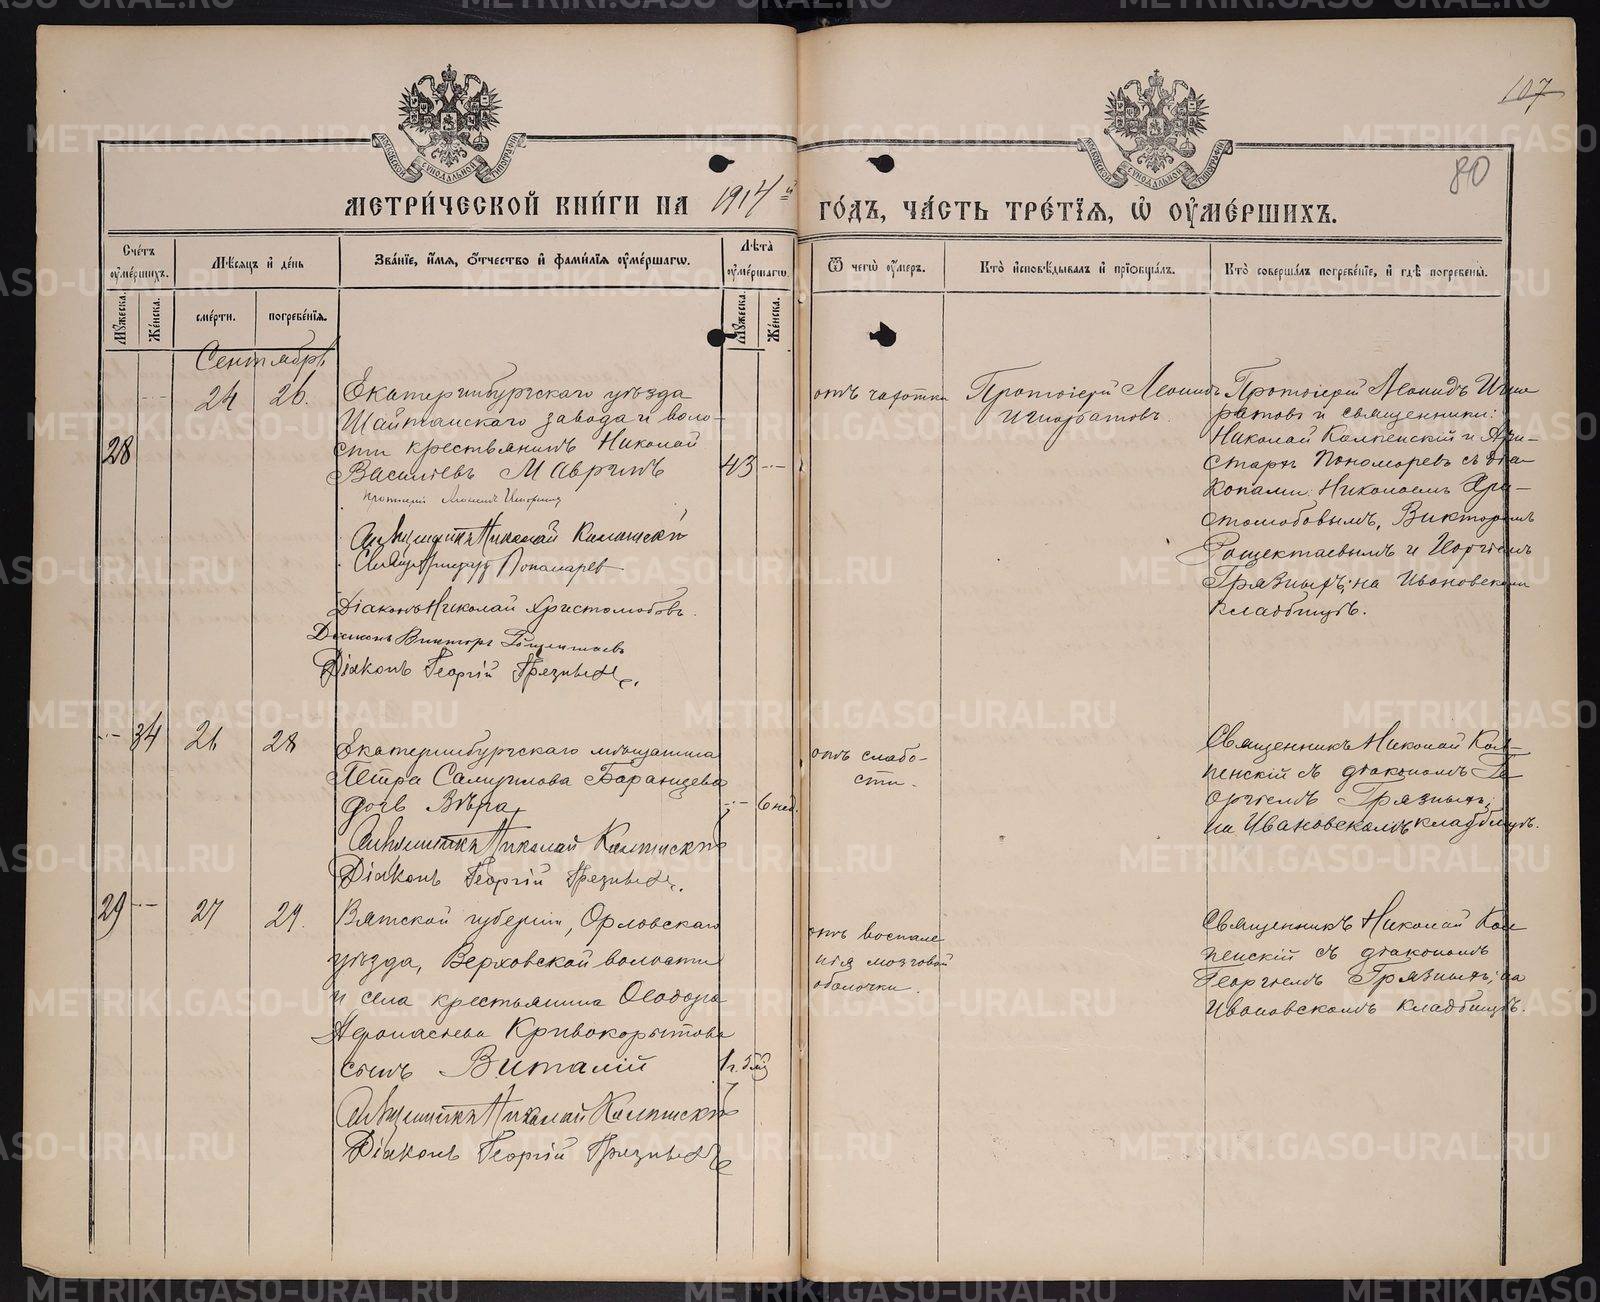 107
80
МЕТРИ́ЧЕСКОЙ КНИ́ГИ НА 1914й ГО́ДЪ, ЧА́СТЬ ТРЕ́ТІЯ, Ѡ҆ ОУ҆МЕ́РШИХЪ.
Сче́тъ оу҆ме́ршихъ.
Мꙋ́жеска.
Же́нска.
Мѣ́сяцъ и҆ де́нь
сме́рти.
погребе́нїя.
Зва́нїе, и҆́мя, ѻ҆́тчество и҆ фами́лїя оу҆ме́ршагѡ.
Лѣ́та оу҆ме́ршагѡ.
Мꙋ́жеска.
Же́нска.
Ѿ чегѡ̀ оу҆́меръ.
Кто̀ и҆сповѣ́дывалъ и҆ прїѡбща́лъ.
Кто̀ соверша́лъ погребе́нїе, и҆ гдѣ̀ погребены̀.
Сентябрь
28
24
26.
Екатеринбургскаго уѣзда
Шайтанскаго завода и воло-
сти крестьянинъ Николай
Васильевъ Мавринъ
43
Протоіерей Леонидъ Игноратовъ
Священникъ Николай Колпенскій
Свящ. Аристархъ Пономаревъ
Діаконъ Николай Христолюбовъ.
Діаконъ Викторъ
Діаконъ Георгій Грязныхъ.
отъ чахотки
Протоіерей Леонидъ
Игноратовъ.
Протоіерей Леонидъ Игно
ратовъ и священники:
Николай Колпенскій и Ари-
стархъ Пономаревъ съ діа
конами: Николаемъ Хри-
столюбовымъ, Викторомъ
и Георгіемъ
Грязныхъ; на Ивановскомъ
кладбищѣ.
34
26
28
Екатеринбургскаго мѣщанина
Петра Самуилова Баранцева
дочь Вѣра
6 нед.
Священникъ Николай Колпенскій
Діаконъ Георгій Грязныхъ.
отъ слабо-
сти.
Священникъ Николай Кол-
пенскій съ діакономъ Ге
оргіемъ Грязныхъ;
на Ивановскомъ кладбищѣ.
29
27
29.
Вятской губерніи, Орловскаго
уѣзда, Верховской волости
и села крестьянина Ѳеодора
Афонасьева Кривокорытова
сынъ Виталій
1 г. 5 м.
Священникъ Николай Колпенскій
Діаконъ Георгій Грязныхъ
отъ воспале
нія мозговой
оболочки.
Священникъ Николай Кол
пенскій съ діакономъ
Георгіемъ Грязныхъ; на
Ивановскомъ кладбищѣ.
METRIKI.GASO-URAL.RU